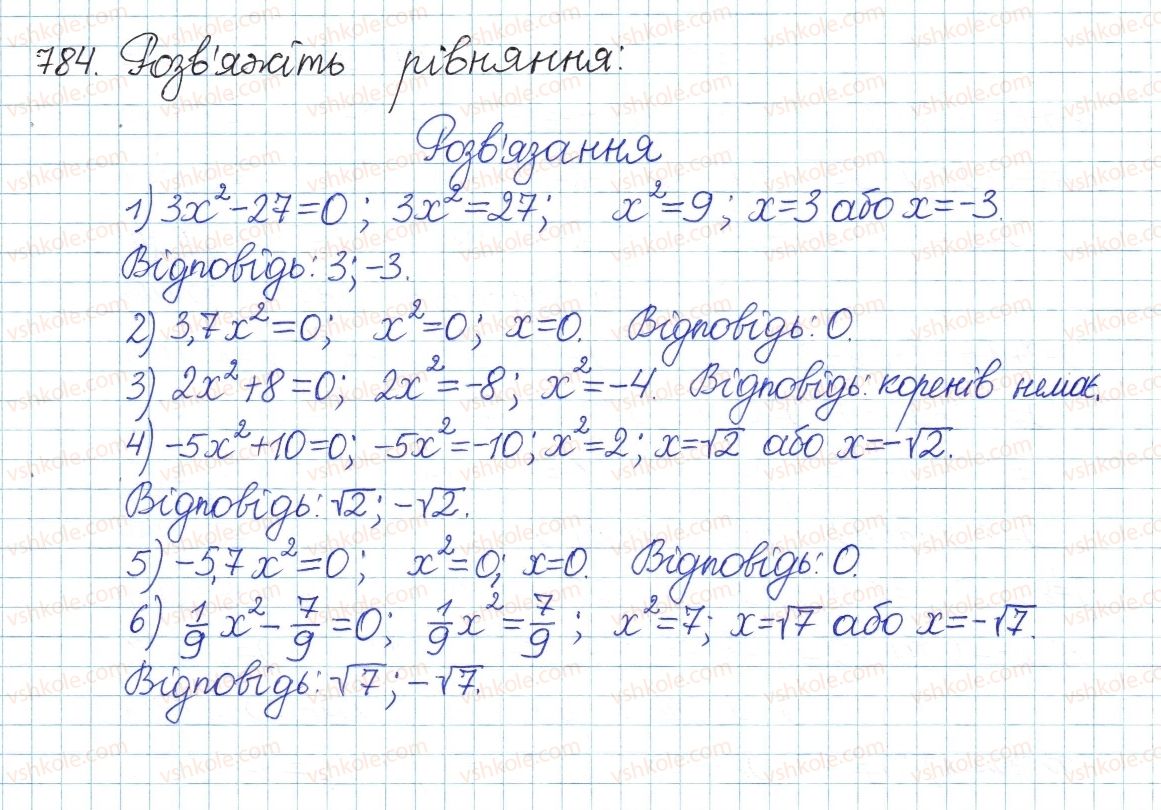 784. Розв'яжіть рівняння:
Розв'язання
1) 3x²-27=0; 3x²=27; x²=9; x=3 або x=-3.
Відповідь: 3; -3.
2) 3,7x²=0; x²=0; x=0. Відповідь: 0.
3) 2x²+8=0; 2x²=-8; x²=-4. Відповідь: коренів немає.
4) -5x²+10=0; -5x²=-10; x²=2; x=√2 або x=-√2.
Відповідь: √2; -√2.
5) -5,7x²=0; x²=0; x=0. Відповідь: 0.
6) 1/9 x² - 7/9 = 0; 1/9 x² = 7/9; x²=7; x=√7 або x=-√7.
Відповідь: √7; -√7.